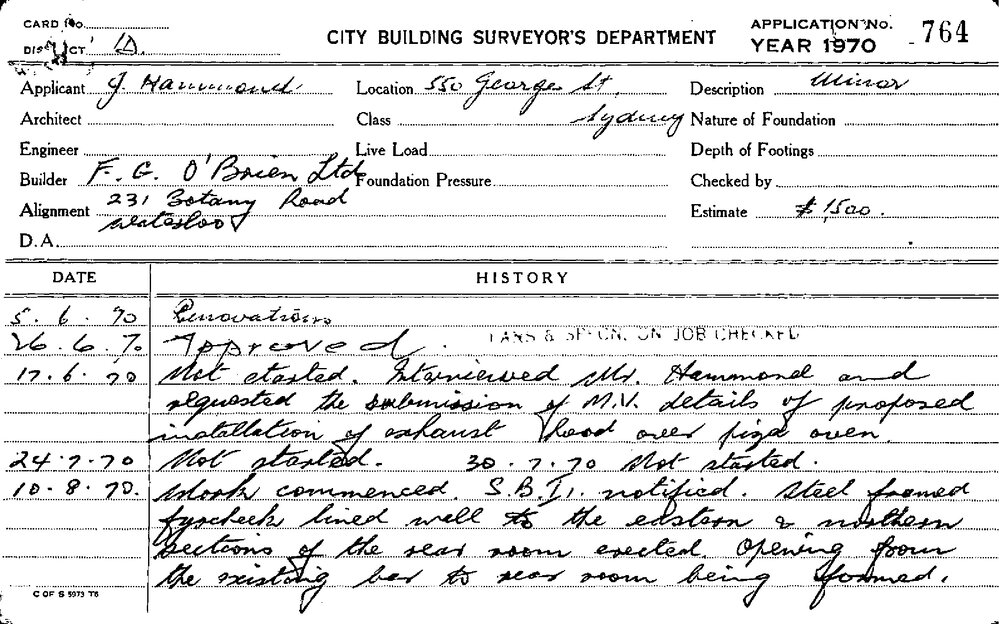 CARD No.
DISTRICT 1A.
CITY BUILDING SURVEYOR'S DEPARTMENT
APPLICATION No. 764
YEAR 1970
Applicant J. Hammond. Location 550 George St. Description Minor
Architect Class Sydney Nature of Foundation
Engineer Live Load Depth of Footings
Builder F. G. O'Brien Ltd Foundation Pressure Checked by
Alignment 231 Botany Road Estimate $1500.
Waterloo
D.A.
DATE HISTORY
5. 6. 70 Renovations
26. 6. 70 Approved. PLANS & SPECN. ON JOB CHECKED
17. 6. 70 Not started. Interviewed Mr. Hammond and
requested the submission of M.V. details of proposed
installation of exhaust hood over piza oven.
24. 7. 70 Not started. 30. 7. 70 Not started.
10. 8. 70. Work commenced. S.B.I. notified. Steel framed
fyrcheck lined wall to the eastern & northern
sections of the rear room erected. Opening from
the existing bar to rear room being formed.
C OF S 5973 T6